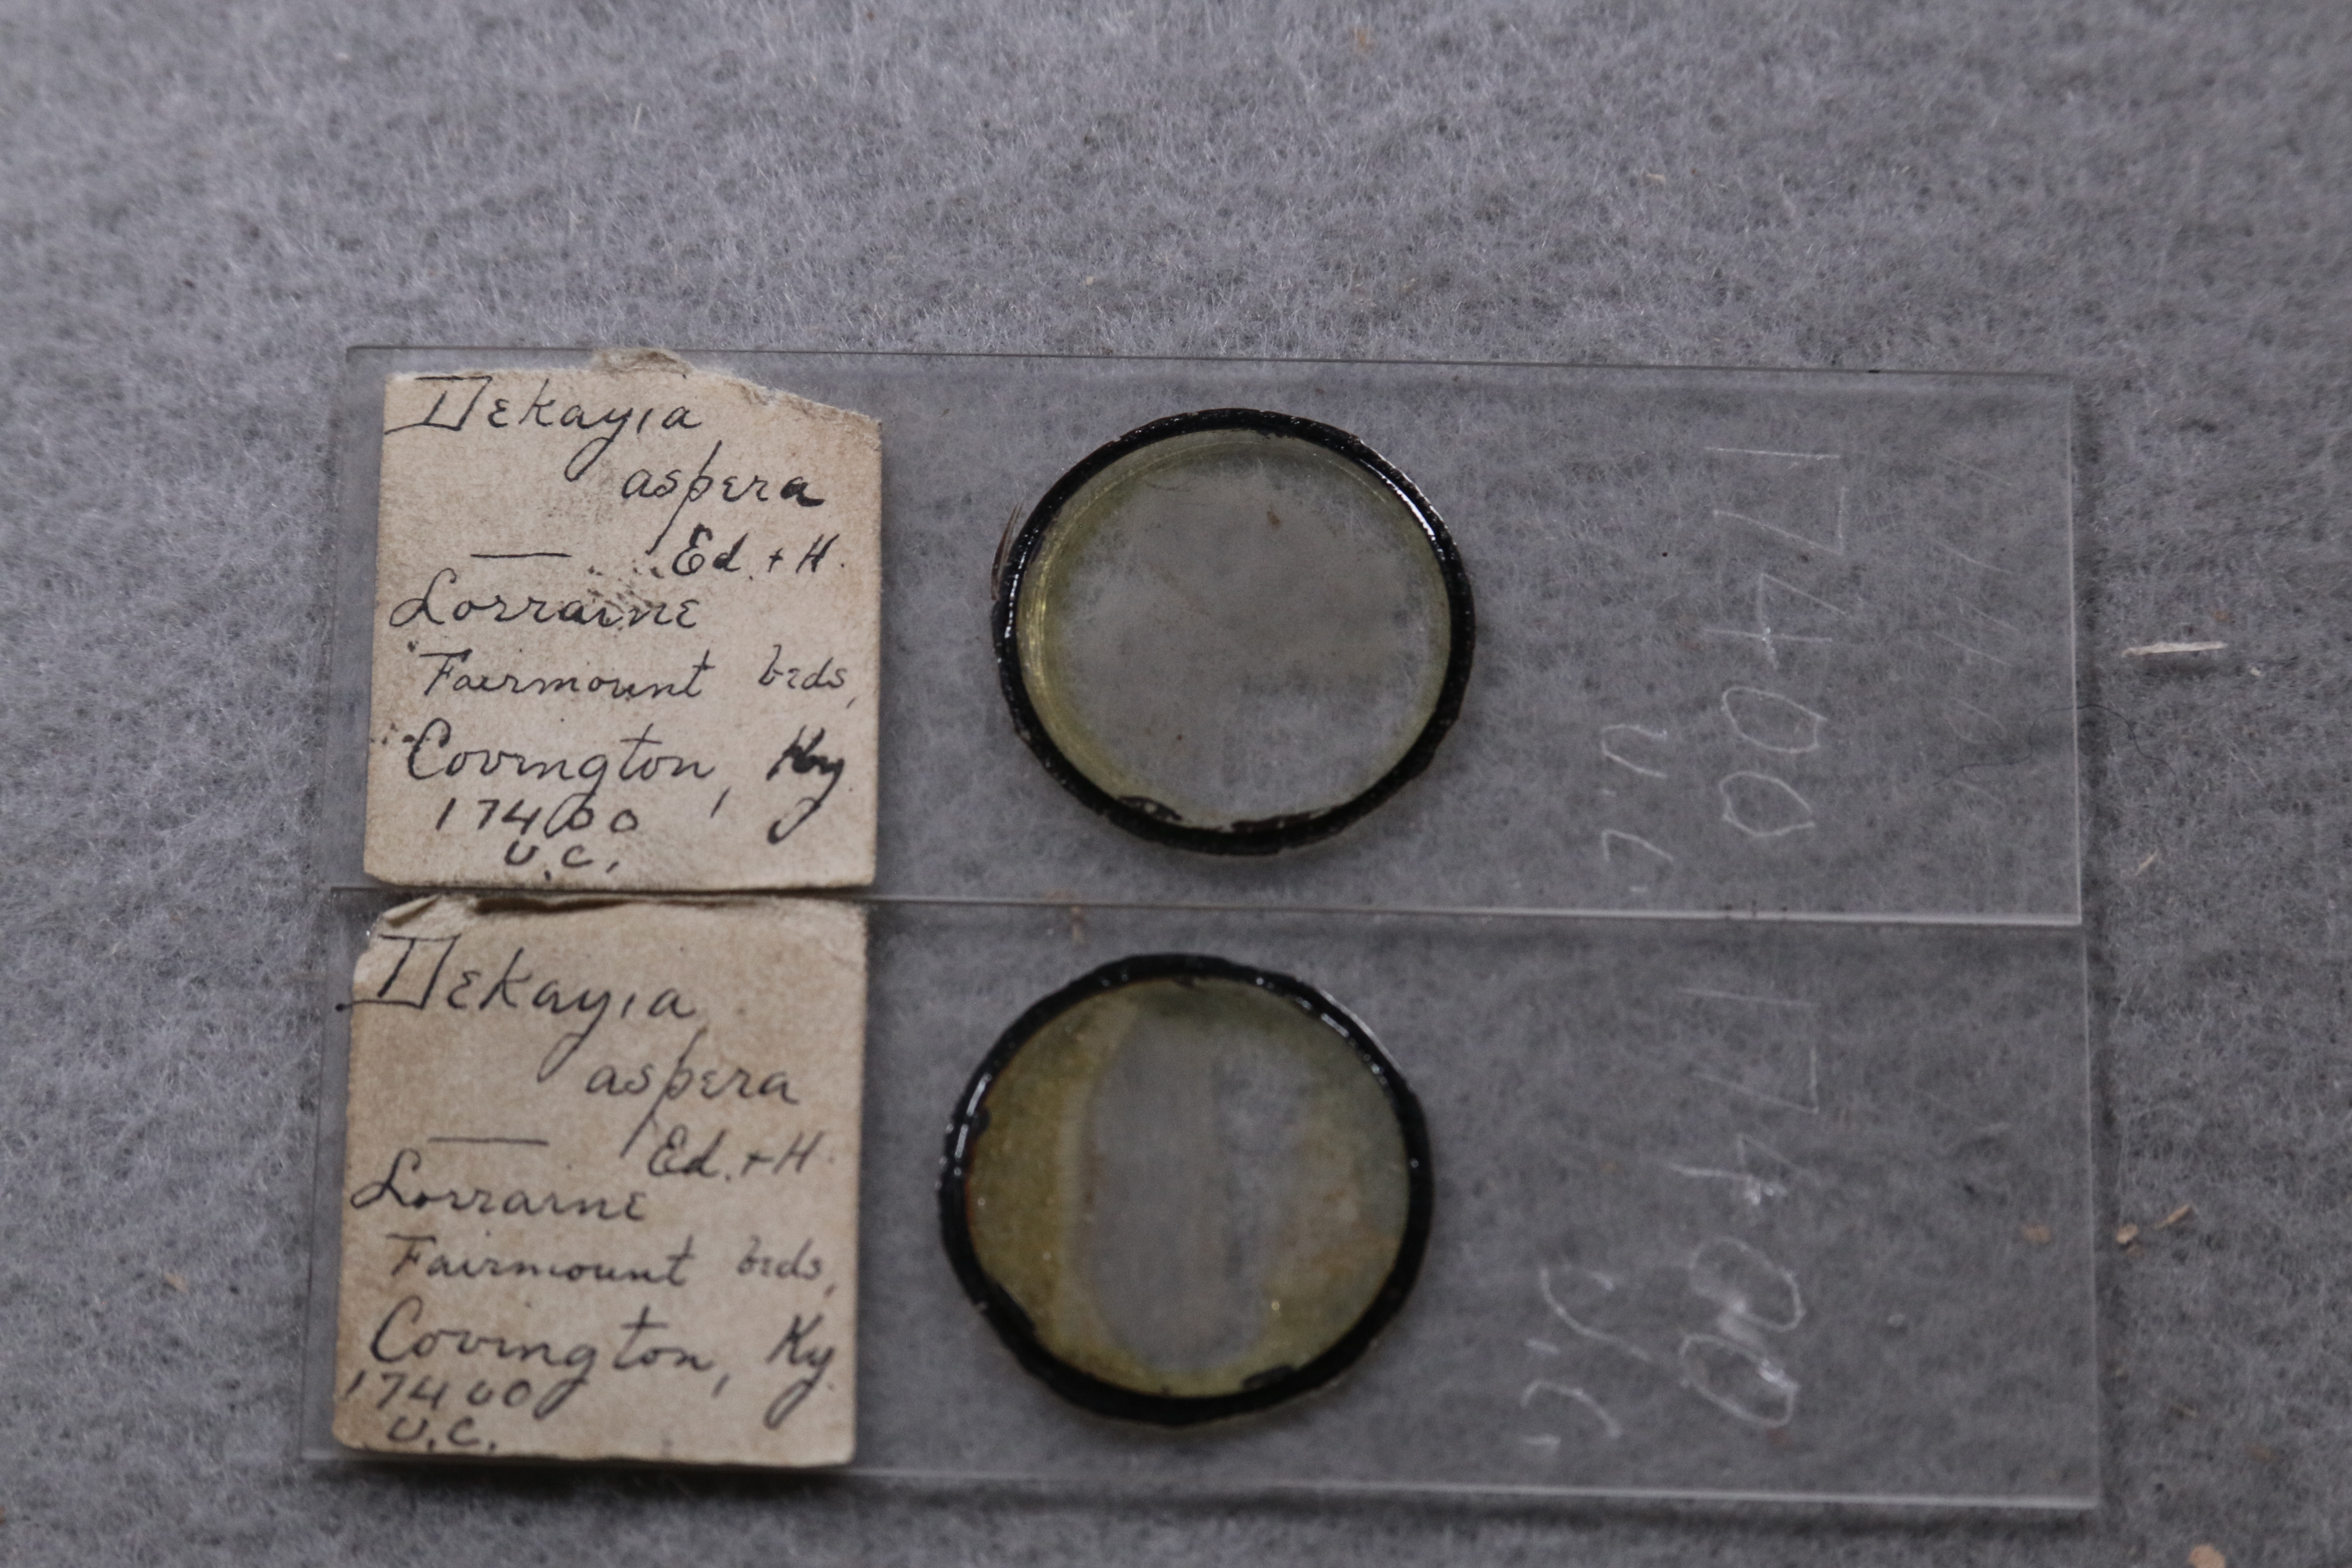 Dekayia
aspera
Ed. + H.
Lorraine
Fairmount beds,
Covington, Ky
17400
U.C.
17400
U.C.
Dekayia
aspera
Ed. + H.
Lorraine
Fairmount beds,
Covington, Ky.
17400
U.C.
17400
U.C.